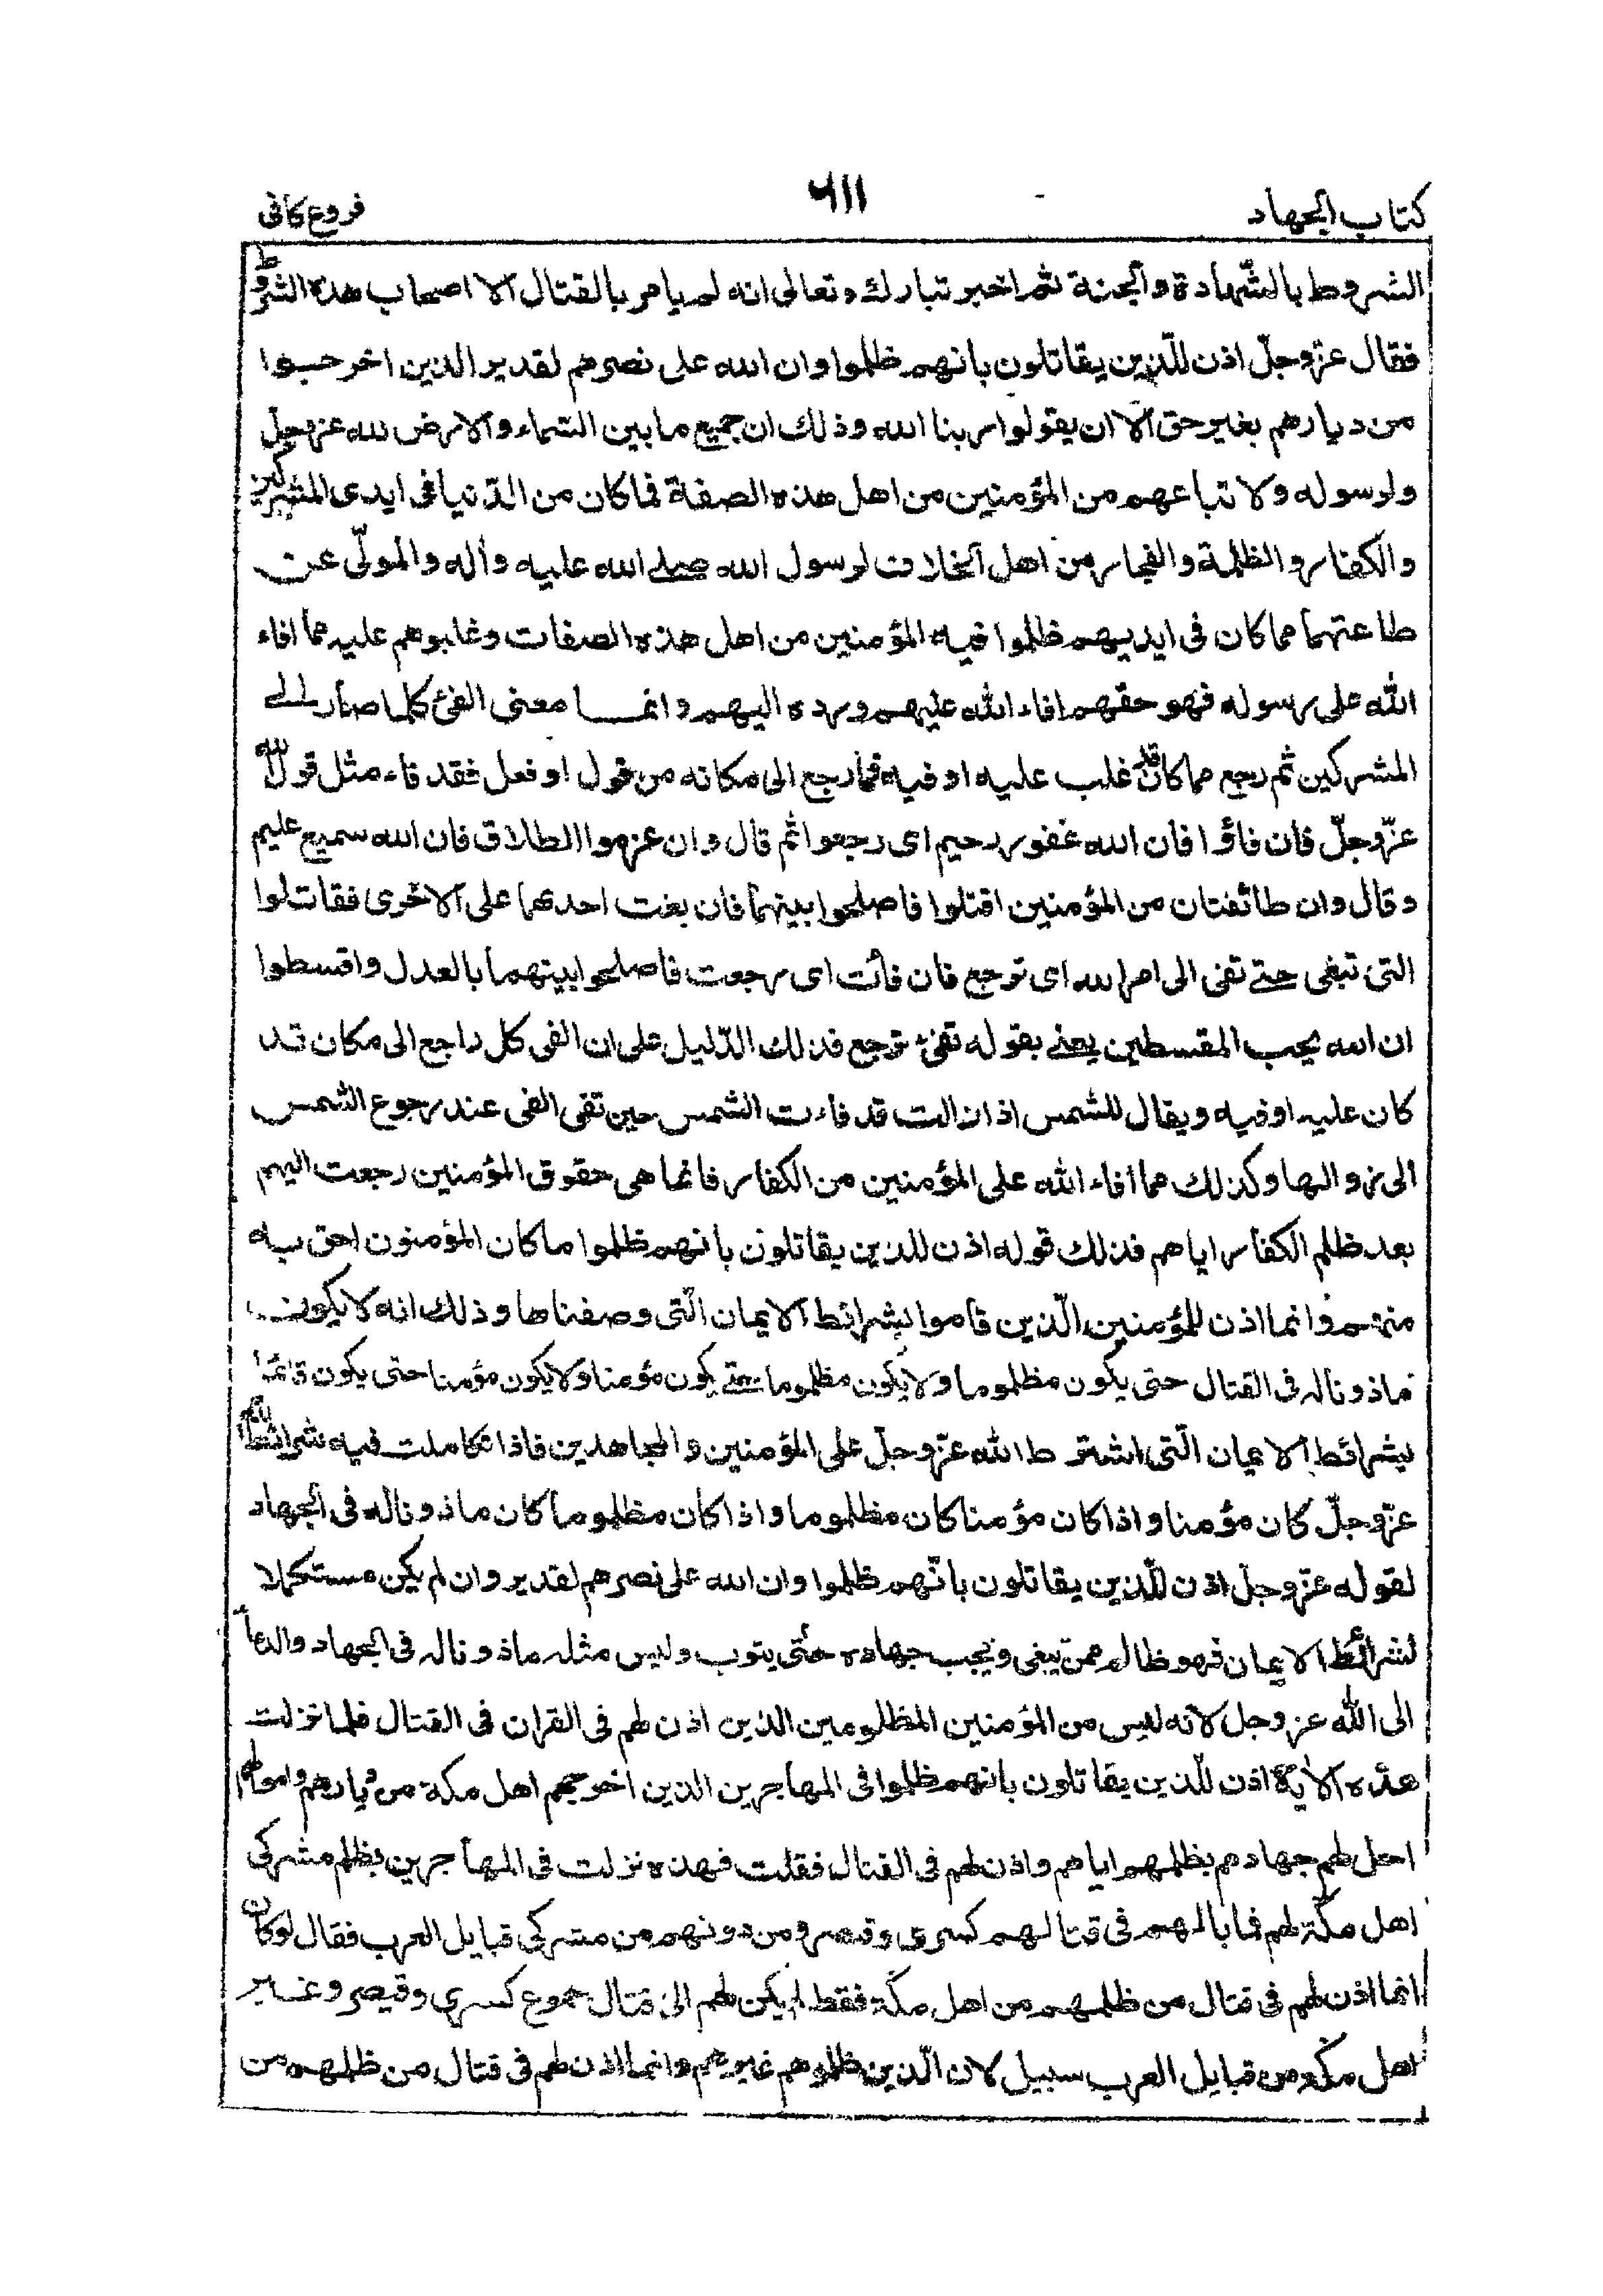 كتاب الجهاد
٦١١
فروع كافى
الشروط بالشّهادة والجنة ثم اخبر تبارك وتعالى انه لم يامر بالقتال الا اصحاب هذه الشروط
فقال عزّوجلّ اذن للّذين يقاتلون بانهم ظلموا وان الله على نصرهم لقدير الذين اخرجوا
من ديارهم بغير حق الا ان يقولوا ربنا الله وذلك ان جميع ما بين السّماء والارض لله عزوجلّ
ولرسوله ولاتباعهم من المؤمنين من اهل هذه الصفة فما كان من الدّنيا فى ايدى المشركين
والكفار والظلمة والفجار من اهل الخلاف لرسول الله صلى الله عليه وأله والمولّى عن
طاعتهما مما كان فى ايديهم ظلموا فيه المؤمنين من اهل هذه الصفات وغلبوهم عليه مما افاء
الله على رسوله فهو حقهم افاء الله عليهم ورده اليهم وانما معنى الفئ كلما صار الى
المشركين ثم رجع مما كان قد غلب عليه او فيه فما رجع الى مكانه من قول او فعل فقد فاء مثل قول الله
عزّوجلّ فان فاؤا فان الله غفور رحيم اى رجعوا ثم قال وان عزموا الطلاق فان الله سميع عليم
وقال وان طائفتان من المؤمنين اقتلوا فاصلحوا بينهما فان بغت احدهما على الاخرى فقاتلوا
التى تبغى حتى تفى الى امر الله اى ترجع فان فائت اى رجعت فاصلحوا بينهما بالعدل واقسطوا
ان الله يحب المقسطين يعنى بقوله تفئ ترجع فذلك الدّليل على ان الفى كل راجع الى مكان قد
كان عليه او فيه ويقال للشمس اذا زالت قد فاءت الشمس حين تفى الفى عند رجوع الشمس
الى زوالها وكذلك مما افاء الله على المؤمنين من الكفار فانما هى حقوق المؤمنين رجعت اليهم
بعد ظلم الكفار اياهم فذلك قوله اذن للذين يقاتلون بانهم ظلموا ما كان المؤمنون احق به
منهم وانما اذن للمؤمنين الّذين قاموا بشرائط الايمان الّتى وصفناها وذلك انه لا يكون
ماذونا له فى القتال حتى يكون مظلوما ولا يكون مظلوما حتى يكون مؤمنا ولا يكون مؤمنا حتى يكون قائما
بشرائط الايمان الّتى اشترط الله عزّوجلّ على المؤمنين والمجاهدين فاذا تكاملت فيه شرائط الله
عزّوجلّ كان مؤمنا واذا كان مؤمنا كان مظلوما واذا كان مظلوما كان ماذونا له فى الجهاد
لقوله عزّوجلّ اذن للّذين يقاتلون بانّهم ظلموا وان الله على نصرهم لقدير وان لم يكن مستكملا
لشرائط الايمان فهو ظالم ممن يبغى ويجب جهاده حتى يتوب وليس مثله ماذونا له فى الجهاد والدعا
الى الله عزوجل لانه ليس من المؤمنين المظلومين الذين اذن لهم فى القران فى القتال فلما نزلت
هذه الاية اذن للّذين يقاتلون بانهم ظلموا فى المهاجرين الذين اخرجهم اهل مكة من ديارهم واموالهم
احل لهم جهادهم بظلمهم اياهم واذن لهم فى القتال فقلت فهذه نزلت فى المهاجرين بظلم مشركى
اهل مكّة لهم فما بالهم فى قتالهم كسرى وقيصر ومن دونهم من مشركى قبايل العرب فقال لو كان
انما اذن لهم فى قتال من ظلمهم من اهل مكة فقط لم يكن لهم الى قتال جموع كسرى وقيصر وغير
اهل مكة من قبايل العرب سبيل لان الّذين ظلموهم غيرهم وانما اذن لهم فى قتال من ظلمهم من